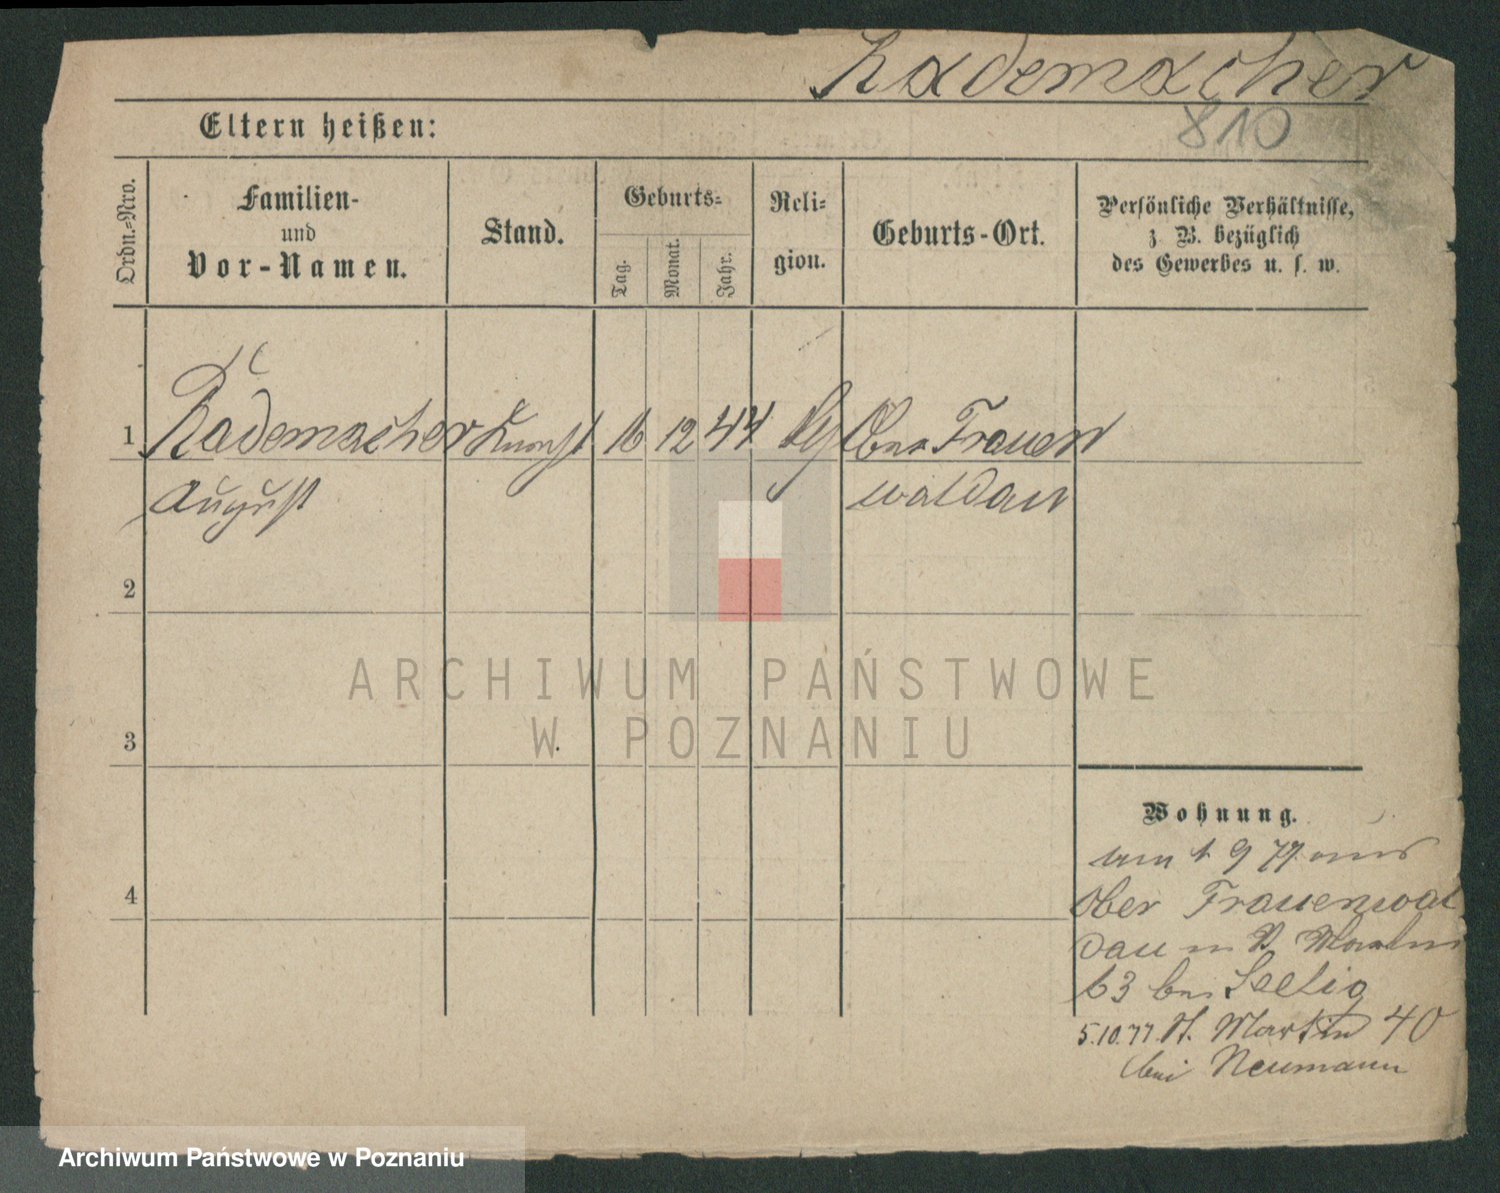 Rademacher
810
Eltern heißen:
Ordn.-Nro.
Familien-
und
Vor-Namen.
Stand.
Geburts-
Tag.
Monat.
Jahr.
Reli-
gion.
Geburts-Ort.
Persönliche Verhältnisse,
z. B. bezüglich
des Gewerbes u. s. w.
1 Rademacher 16 12 44 Ober Frauen
August waldau
2
3
4
ARCHIWUM PAŃSTWOWE
W POZNANIU
Wohnung.
1 9 77 aus
Ober Frauenwal
dau
63 bei Seelig
5.10.77. St. Martin 40
bei Neumann
Archiwum Państwowe w Poznaniu